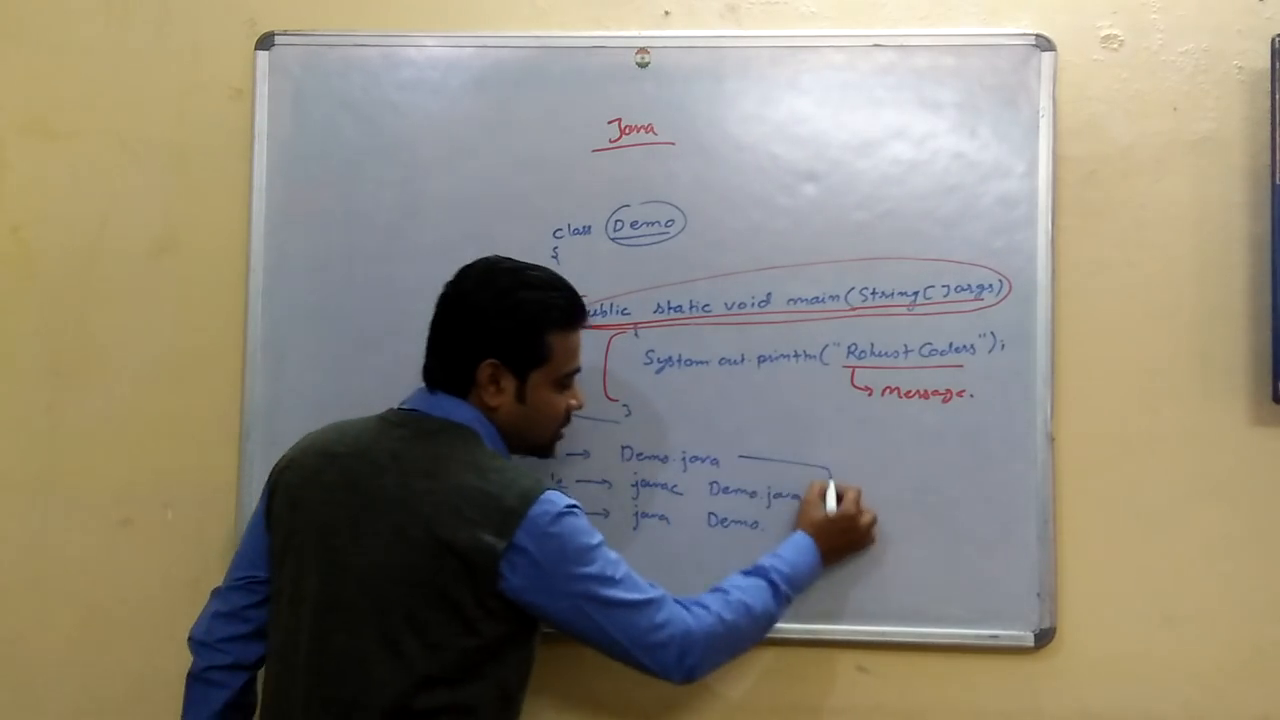 Java
class Demo
{
public static void main(String[]args)
{
System.out.println("Robust Coders");
Message.
}
→ Demo.java
→ javac Demo.java
→ java Demo.